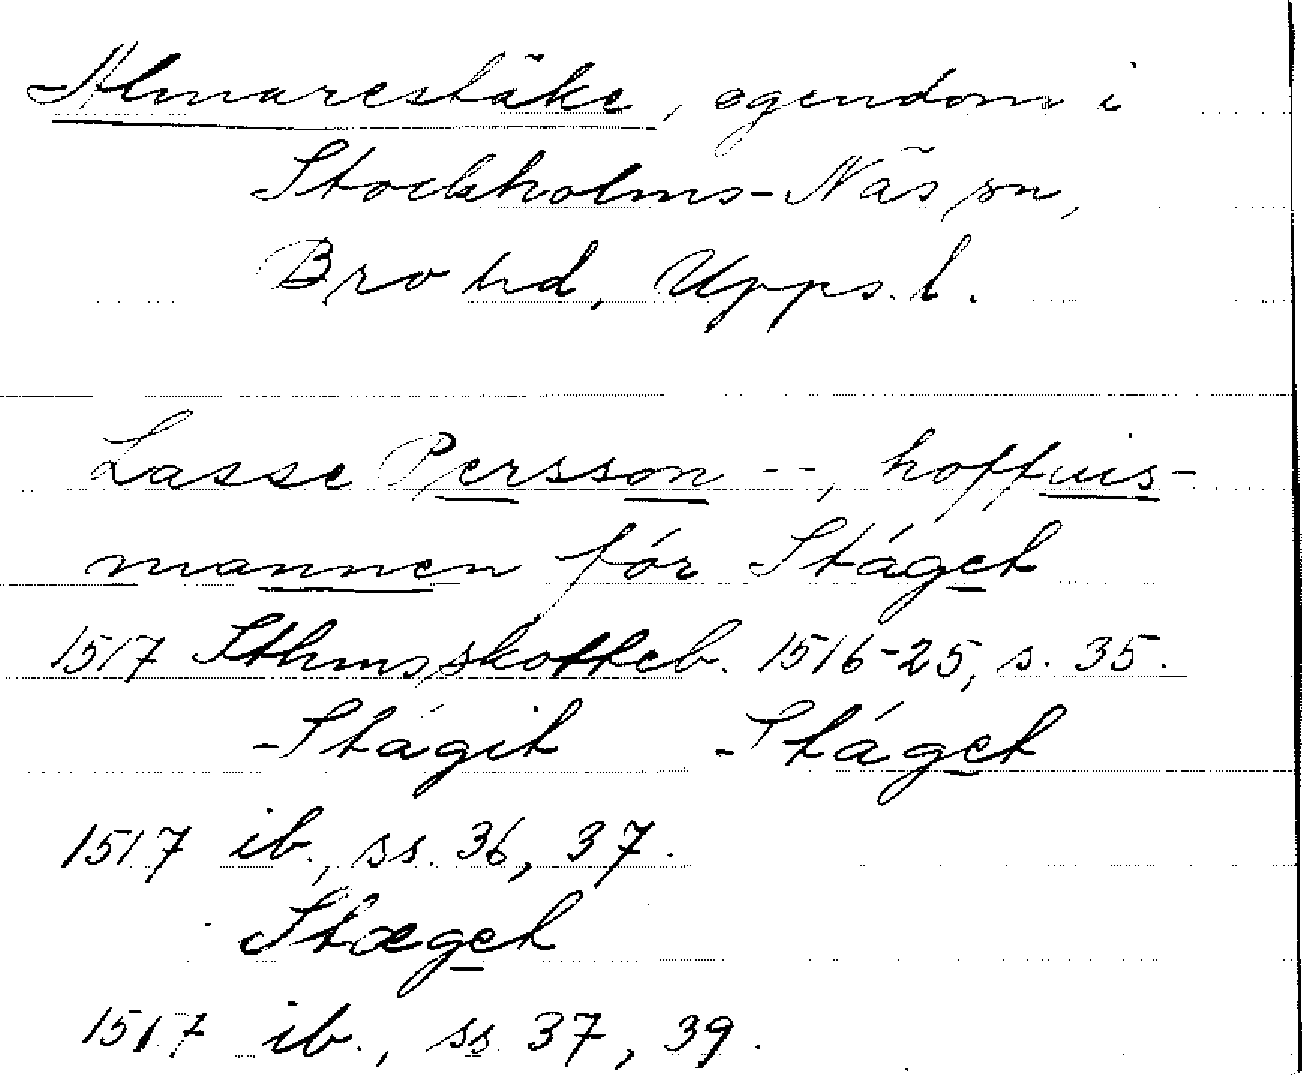 Almarestäke, egendom i
Stockholms-Näs sn,
Bro hd, Upps. l.
Lasse Persson --, hoffuis-
mannen fór Stáget
1517 Sthmsskotteb. 1516-25, s. 35.
-Stágit -Stáget
1517 ib., ss. 36, 37.
Stæget
1517 ib., ss. 37, 39.